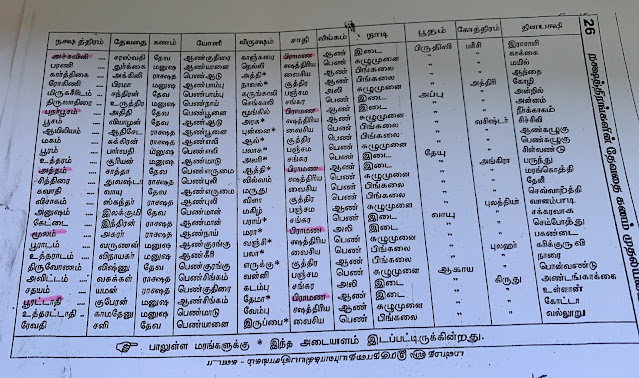 26
நக்ஷத்திரங்களின் தேவதை கணம் முதலியன
நக்ஷத்திரம் தேவதை கணம் யோனி விருக்ஷம் சாதி லிங்கம் நாடி பூதம் கோத்திரம் தினபக்ஷி
அச்சுவினி .... சரஸ்வதி தேவ ஆண்குதிரை காஞ்சுரை பிராமண ஆண் இடை பிருதிவி மரீசி இராசாளி
பரணி .... துர்க்கை மனுஷ ஆண்யானை நெல்லி க்ஷத்திரிய பெண் சுழுமுனை " " காக்கை
கார்த்திகை .... அக்கினி ராக்ஷத பெண்ஆடு அத்தி* வைசிய பெண் பிங்கலை " " மயில்
ரோகிணி .... பிரமா மனுஷ ஆண்பாம்பு நாவல்* சூத்திர பெண் பிங்கலை " " ஆந்தை
மிருகசீரிடம் .... சந்திரன் தேவ பெண்பாம்பு கருங்காலி பஞ்சம அலி சுழுமுனை " அத்திரி கோழி
திருவாதிரை .... உருத்திர மனுஷ ஆண்நாய் செங்காலி சங்கர பெண் இடை அப்பு " அன்றில்
புநர்பூசம் .... அதிதி தேவ பெண்பூனை மூங்கில் பிராமண ஆண் இடை " " அன்னம்
பூசம் .... வியாழன் தேவ ஆண்ஆடு அரசு* க்ஷத்திரிய ஆண் சுழுமுனை " " நீர்க்காகம்
ஆயிலியம் .... ஆதிசேட ராக்ஷத ஆண்பூனை புன்னை* வைசிய பெண் பிங்கலை " வசிஷ்டர் சிச்சிலி
மகம் .... சுக்கிரன் ராக்ஷத ஆண்எலி ஆல்* சூத்திர ஆண் பிங்கலை " " ஆண்கழுகு
பூரம் .... பார்வதி மனுஷ பெண்எலி பலாசு* பஞ்சம பெண் சுழுமுனை " " பெண்கழுகு
உத்தரம் .... சூரியன் மனுஷ ஆண்மாடு அலரி* சங்கர பெண் இடை தேயு " சிள்வண்டு
அத்தம் .... சாத்தா தேவ பெண்எருமை ஆத்தி* பிராமண ஆண் இடை " அங்கிரா பருந்து
சித்திரை .... துவஷ்டா ராக்ஷத பெண்புலி வில்வம் க்ஷத்திரிய பெண் சுழுமுனை " " மரங்கொத்தி
சுவாதி .... வாயு தேவ ஆண்எருமை மருது வைசிய பெண் பிங்கலை " " தேனீ
விசாகம் .... ஸ்கந்தர் ராக்ஷத ஆண்புலி விளா சூத்திர பெண் பிங்கலை " " செவ்வாற்தி
அனுஷம் .... இலக்குமி தேவ பெண்மான் மகிழ் பஞ்சம ஆண் சுழுமுனை " புலத்தியர் வானம்பாடி
கேட்டை .... இந்திரன் ராக்ஷத ஆண்மான் பராய்* சங்கர பெண் இடை வாயு " சக்கரவாக
மூலம் .... அசுரர் ராக்ஷத ஆண்நாய் மரா* பிராமண அலி இடை " " செம்போத்து
பூராடம் .... வருணன் மனுஷ ஆண்குரங்கு வஞ்சி* க்ஷத்திரிய பெண் சுழுமுனை " " பகண்டை
உத்தராடம் .... விநாயகர் மனுஷ ஆண்கீரி பலா* வைசிய பெண் பிங்கலை " புலஹர் கரிக்குருவி
திருவோணம் .... விஷ்ணு தேவ பெண்குரங்கு எருக்கு* சூத்திர ஆண் பிங்கலை " " நாரை
அவிட்டம் .... வசுக்கள் ராக்ஷத பெண்சிங்கம் வன்னி பஞ்சம பெண் சுழுமுனை ஆகாய " பொன்வண்டு
சதயம் .... யமன் ராக்ஷத பெண்குதிரை கடம்பு சங்கர அலி இடை " கிருது அண்டங்காக்கை
பூரட்டாதி .... குபேரன் மனுஷ ஆண்சிங்கம் தேமா* பிராமண ஆண் இடை " " உள்ளான்
உத்தரட்டாதி .... காமதேனு மனுஷ பெண்மாடு வேம்பு க்ஷத்திரிய ஆண் சுழுமுனை " " கோட்டான்
ரேவதி .... சனி தேவ பெண்யானை இருப்பை* வைசிய பெண் பிங்கலை " " வல்லூறு
பாலுள்ள மரங்களுக்கு * இந்த அடையாளம் இடப்பட்டிருக்கிறது.